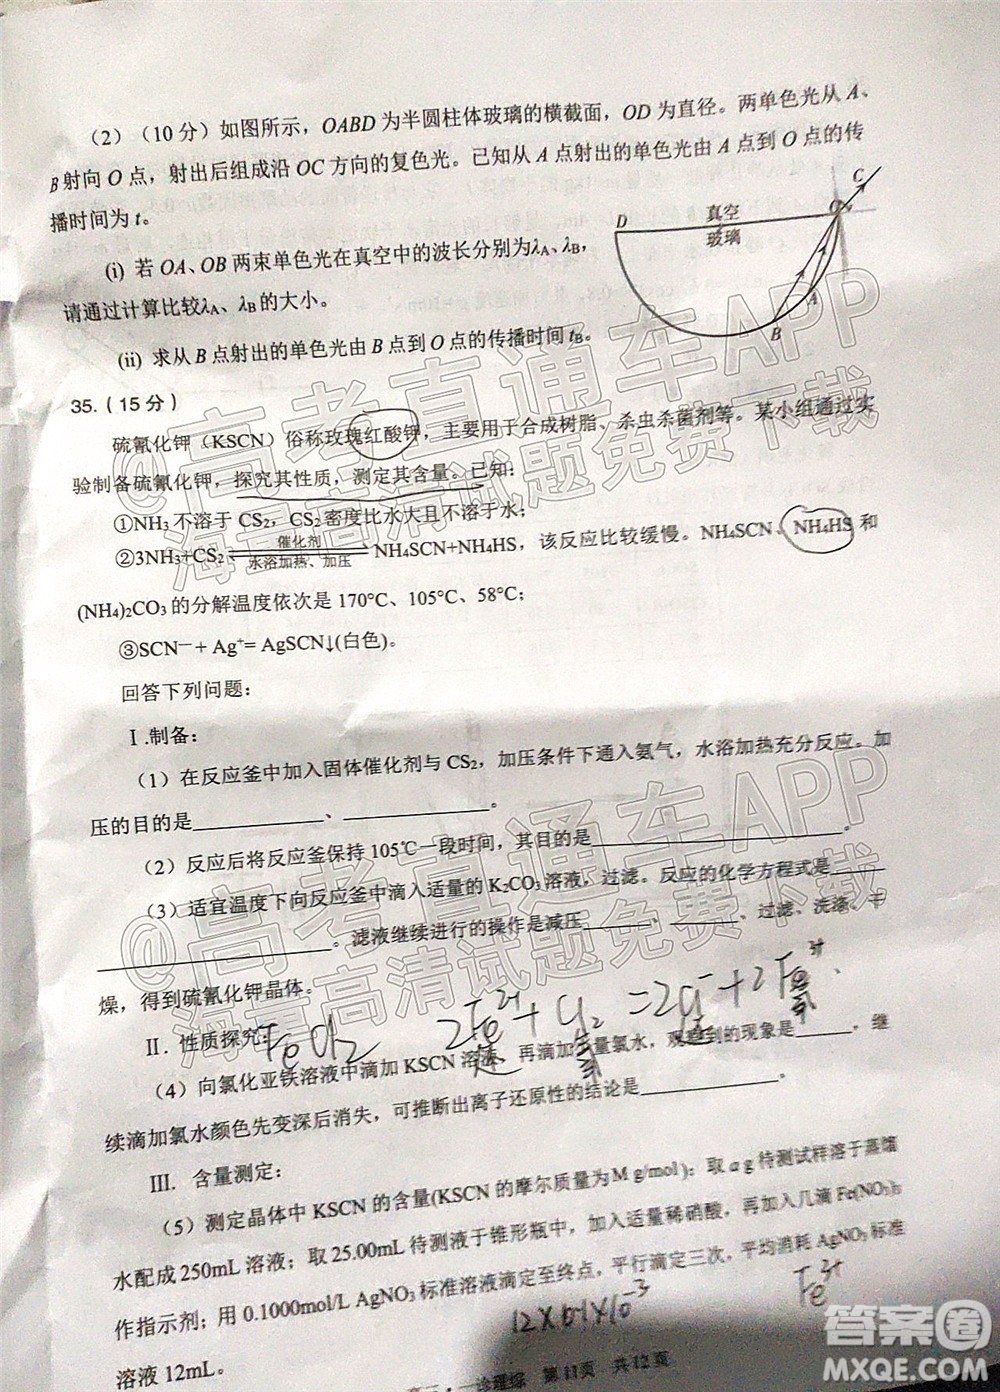 (2)(10 分)如图所示，OABD 为半圆柱体玻璃的横截面，OD 为直径。两单色光从 A、
B 射向 O 点，射出后组成沿 OC 方向的复色光。已知从 A 点射出的单色光由 A 点到 O 点的传
播时间为 t。
C
D
真空
O
玻璃
A
B
(i) 若 OA、OB 两束单色光在真空中的波长分别为λA、λB，
请通过计算比较λA、λB 的大小。
(ii) 求从 B 点射出的单色光由 B 点到 O 点的传播时间 tB。
35.（15 分）
硫氰化钾（KSCN）俗称玫瑰红酸钾，主要用于合成树脂、杀虫杀菌剂等。某小组通过实
验制备硫氰化钾，探究其性质，测定其含量。已知：
①NH3 不溶于 CS2，CS2 密度比水大且不溶于水；
催化剂
②3NH3+CS2 NH4SCN+NH4HS，该反应比较缓慢。NH4SCN、NH4HS 和
水浴加热、加压
(NH4)2CO3 的分解温度依次是 170°C、105°C、58°C；
③SCN－+ Ag+= AgSCN↓(白色)。
回答下列问题：
Ⅰ.制备：
（1）在反应釜中加入固体催化剂与 CS2，加压条件下通入氨气，水浴加热充分反应。加
压的目的是____________、____________。
（2）反应后将反应釜保持 105℃一段时间，其目的是____________。
（3）适宜温度下向反应釜中滴入适量的 K2CO3 溶液，过滤。反应的化学方程式是______
____________。滤液继续进行的操作是减压______、______、过滤、洗涤、干
燥，得到硫氰化钾晶体。
Ⅱ. 性质探究：
FeCl2 2Fe2+ + Cl2 = 2Cl- + 2Fe3+
（4）向氯化亚铁溶液中滴加 KSCN 溶液，再滴加少量氯水，观察到的现象是______，继
续滴加氯水颜色先变深后消失，可推断出离子还原性的结论是____________。
Ⅲ. 含量测定：
（5）测定晶体中 KSCN 的含量(KSCN 的摩尔质量为 M g/mol)：取 a g 待测试样溶于蒸馏
水配成 250mL 溶液；取 25.00mL 待测液于锥形瓶中，加入适量稀硝酸，再加入几滴 Fe(NO3)3
作指示剂；用 0.1000mol/L AgNO3 标准溶液滴定至终点，平行滴定三次，平均消耗 AgNO3 标准
溶液 12mL。
12×0.1×10-3
Fe3+
诊理综 第 11页 共 12 页
@高考直通车APP
海量高清试题免费下载
@高考直通车APP
海量高清试题免费下载
答案圈
MXQE.COM